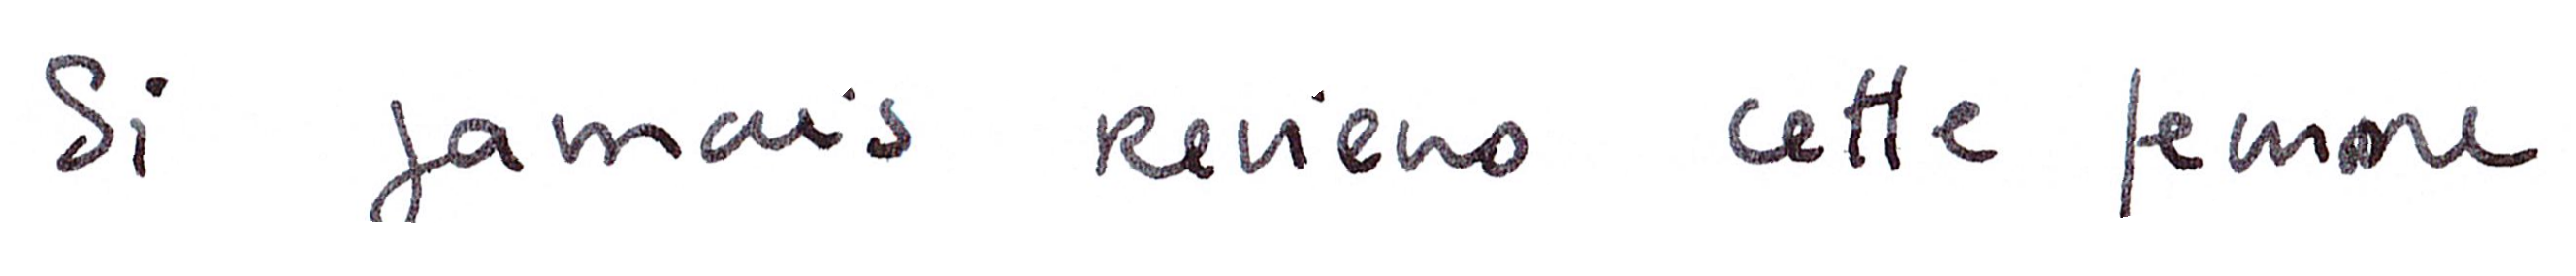 Si jamais reviens cette femme